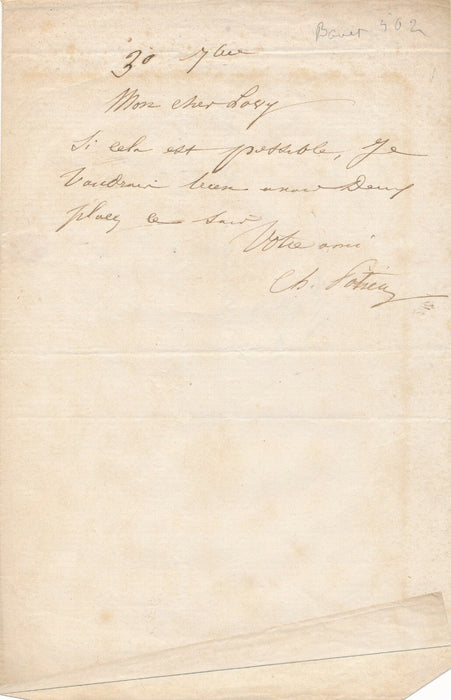 502
30 7bre
Mon cher
Si cela est possible, Je
voudrais bien avoir Deux
places ce soir
Votre ami
Ch.